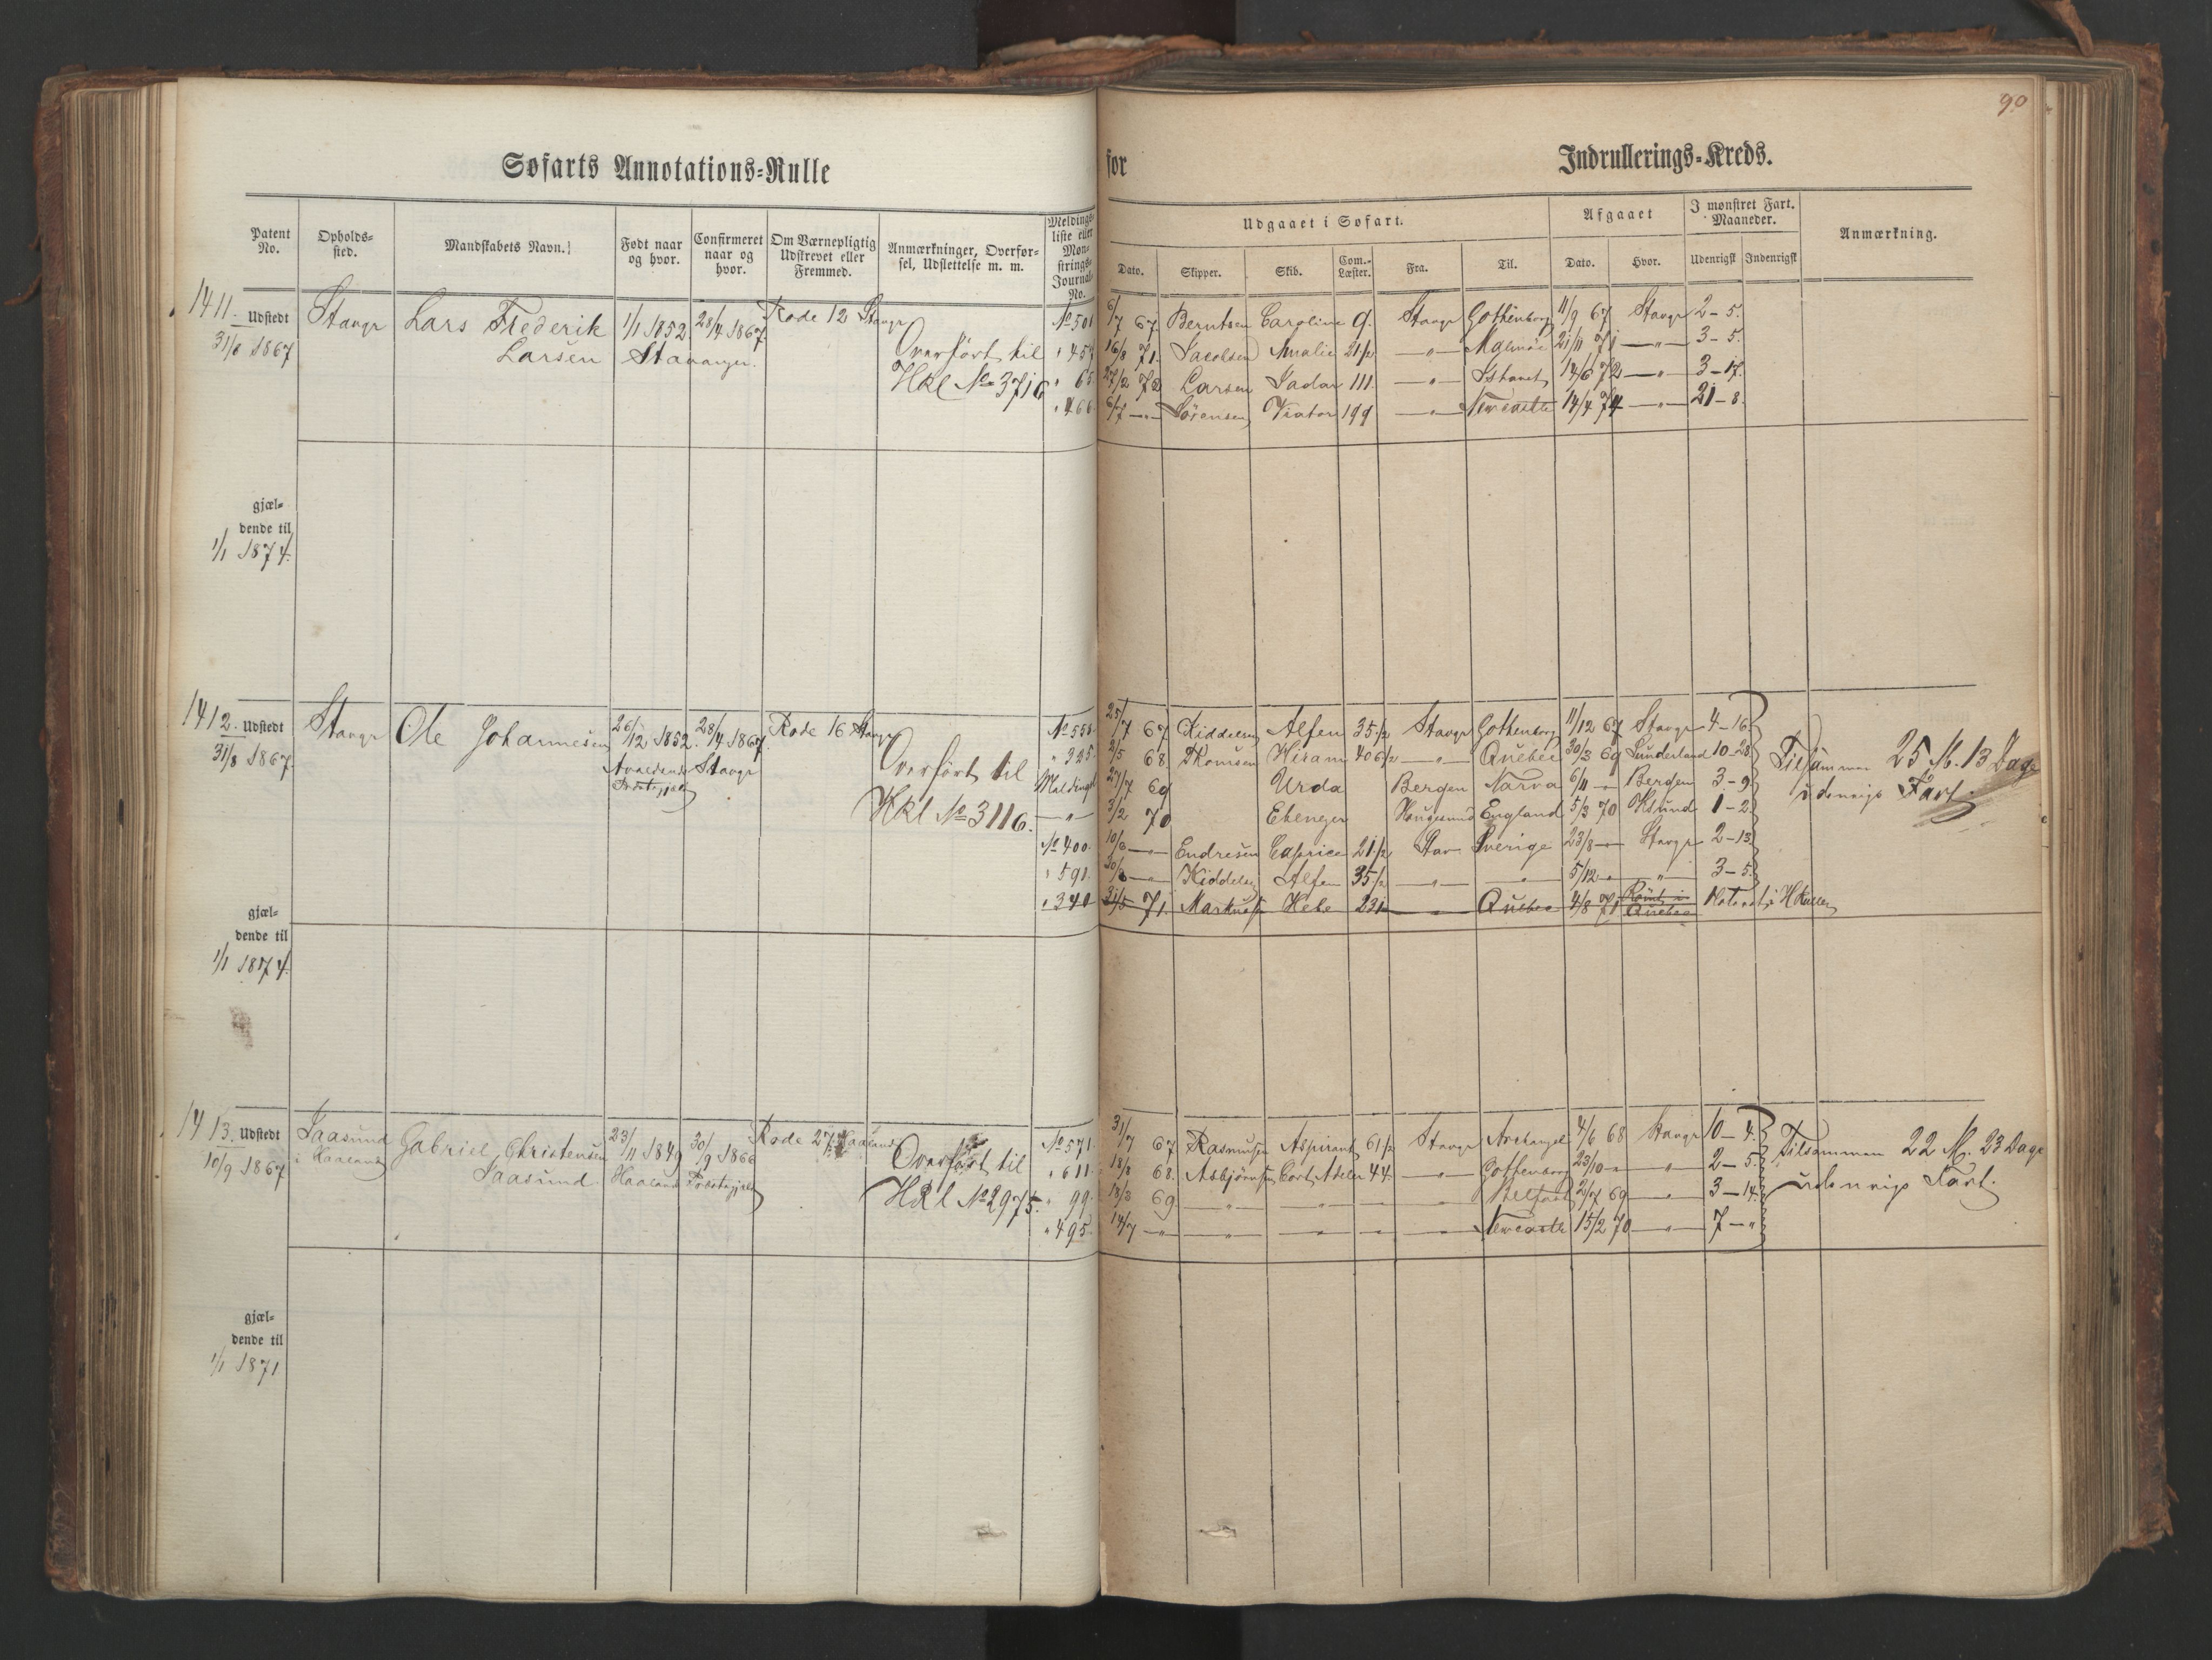 90
Søfarts Annotations=Rulle for Indrullerings=Kreds.
Patent No.
Opholds=sted.
Mandskabets Navn.
Født naar og hvor.
Confirmeret naar og hvor.
Om Værnepligtig Udskrevet eller Fremmed.
Anmærkninger, Overførsel, Udslettelse m. m.
Meldings=liste eller Mønstrings=Journal No.
Udgaaet i Søfart.
Dato. Skipper. Skib. Com.=Læster. Fra. Til.
Afgaaet
Dato. Hvor.
I mønstret Fart. Maaneder.
Udenrigsk Indenrigsk
Anmærkning.
1411. Udstedt Stavgr Lars Frederik 1/1 1852. 28/4 1867. Rode 12 Stavgr
31/8 1867 Larsen Stavanger.
Overført til
Hkl No 3716
No 501 6/7 67 Berntsen Caroline 9. Stavgr Gothenborg 11/9 67 Stavgr 2-5.
" 457 16/8 71. Jacobsen Amalie 21 1/2 -"- Malmöe 21/11 71 -"- 3-5.
" 65. 27/2 72 Larsen Sadan 111. -"- 14/6 72 -"- 3-17.
" 466. 6/7 -"- Sörensen Viator 199 -"- Newcastle 14/4 74 -"- 21-8.
gjæl=
dende til
1/1 1874.
1412. Udstedt Stavgr Ole Johannesen 26/12 1852. 28/4 1867. Rode 16 Stavgr
31/8 1867. Stavgr
Overført til
Hkl No 3116.
No 558. 25/7 67 Kiddelsen Alfen 35 1/2 Stavgr Gothenborg 11/12 67 Stavgr 4-16
" 325. 2/5 68 Thomsen Hiram 406 1/2 -"- Quebec 30/3 69 Sunderland 10-28
Meldingsl 27/7 69 Urda Bergen Narva 6/11 -"- Bergen 3-9
-"- 3/2 70 Ebenezer Haugesund England 5/3 70 1-2
No 400. 10/6 -"- Endresen Caprice 21 1/2 Stav Sverige 23/8 -"- Stavgr 2-13
" 591. -"- Kiddelsen Alfen 35 1/2 -"- -"- 5/12 -"- -"- 3-5.
" 340 31/5 71. Markussen Hebe 231 -"- Quebec 4/8 71 Römt i Quebec Noteret i Hrullen
Tilsammen 25 M. 13 Dage
udenrigs Fart.
gjæl=
dende til
1/1 1874.
1413. Udstedt Jaasund Gabriel Christensen 23/11 1849 30/9 1866 Rode 27. Haaland
10/9 1867 i Haaland Jaasund. Haaland
Overført til
Hkl No 2975.
No 571. 31/7 67 Rasmussen Aspirant 61 1/2 Stavgr Archangel 4/6 68 Stavgr 10-4.
" 611. 18/8 68. Asbjörnsen Cort Adeler 44. -"- Gothenborg 23/10 -"- -"- 2-5.
" 99. 18/3 69 -"- -"- -"- Belfast 2/7 69 -"- 3-14.
" 495. 14/7 -"- -"- -"- -"- -"- Newcastle 15/2 70 -"- 7-"
Tilsammen 22 M. 23 Dage
udenrigs Fart.
gjæl=
dende til
1/1 1871.